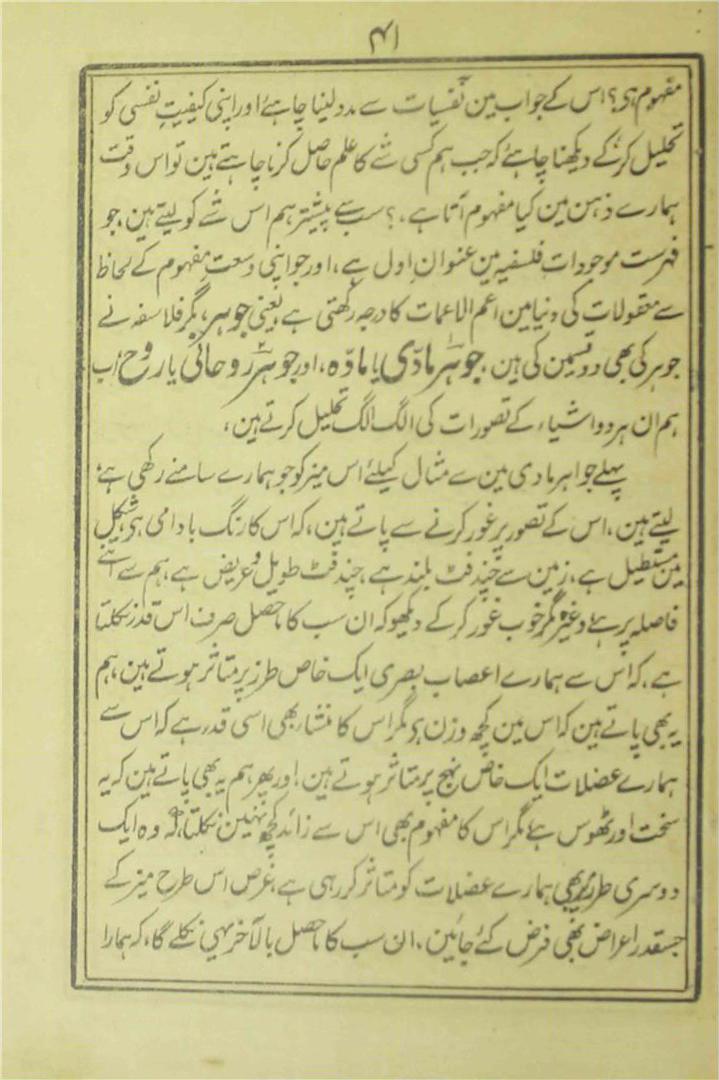 ۴۱
مفہوم ہی؟ اس کے جواب مین نفسیات سے مدد لینا چاہئے اور اپنی کیفیتِ نفسی کو
تحلیل کرکے دیکھنا چاہئے کہ جب ہم کسی شے کا علم حاصل کرنا چاہتے ہین تو اس وقت
ہمارے ذہن مین کیا مفہوم آتا ہے،؟ سب سے پیشتر ہم اس شے کو لیتے ہین، جو
فہرست موجودات فلسفیہ مین عنوان اول ہے، اور جو اپنی وسعت مفہوم کے لحاظ
سے معقولات کی دنیا مین اعم الاعمات کا درجہ رکھتی ہے یعنی جوہر، مگر فلاسفہ نے
جوہر کی بھی دو قسمین کی ہین، جوہر مادّی یا مادّہ، اور جوہر روحانی یا روح، اب
ہم ان ہر دو اشیاء کے تصورات کی الگ الگ تحلیل کرتے ہین،
پہلے جواہر مادی مین سے مثال کیلئے اس میز کو جو ہمارے سامنے رکھی ہے،
لیتے ہین، اس کے تصور پر غور کرنے سے پاتے ہین، کہ اس کا رنگ بادامی ہی، شکل
مین مستطیل ہے، زمین سے چند فٹ بلند ہے، چند فٹ طویل و عریض ہے، ہم سے اتنے
فاصلہ پر ہے، وغیرہ مگر خوب غور کرکے دیکھو کہ ان سب کا ماحصل صرف اس قدر نکلتا
ہے، کہ اس سے ہمارے اعصاب بصری ایک خاص طرز پر متاثر ہوتے ہین، ہم
یہ بھی پاتے ہین کہ اس مین کچھ وزن ہی، مگر اس کا منشا بھی اسی قدر ہے کہ اس سے
ہمارے عضلات ایک خاص نہج پر متاثر ہوتے ہین، اور پھر ہم یہ بھی پاتے ہین کہ یہ
سخت اور ٹھوس ہے، مگر اس کا مفہوم بھی اس سے زائد کچھ نہین نکلتا، کہ وہ ایک
دوسری طرز پر بھی ہمارے عضلات کو متاثر کر رہی ہے، غرض اس طرح میز کے
جسقدر اعراض بھی فرض کئے جائین، ان سب کا ماحصل بالآخر یہی نکلے گا، کہ ہمارا